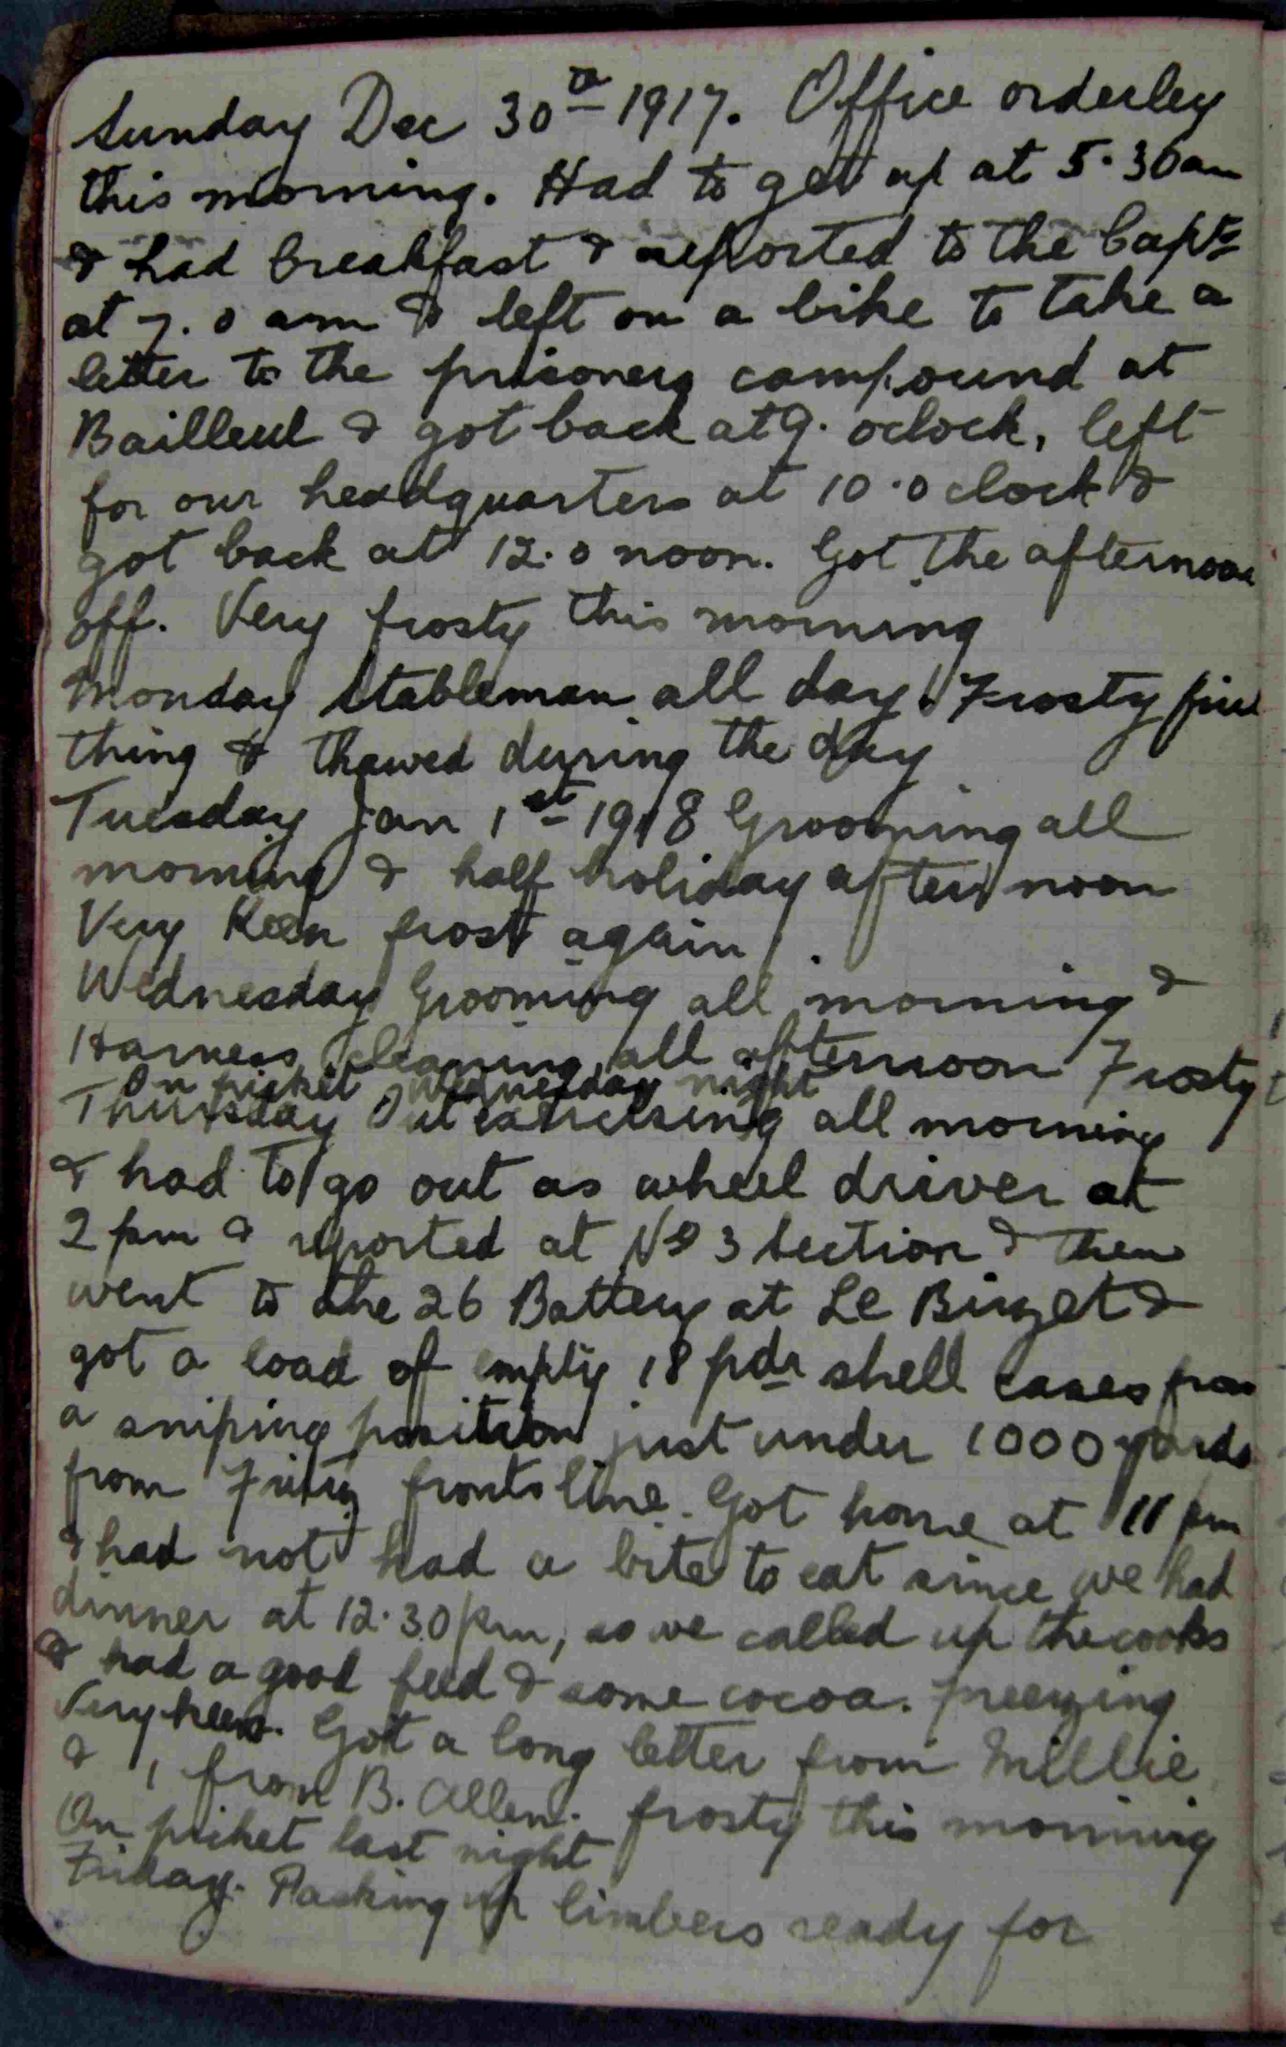 Sunday Dec 30th 1917. Office orderley
this morning. Had to get up at 5.30 am
& had breakfast & reported to the Capt
at 7.0 am & left on a bike to take a
letter to the prisoners compound at
Bailleul & got back at 9. oclock, left
for our headquarters at 10.0 clock &
got back at 12.0 noon. Got the afternoon
off. Very frosty this morning
Monday Stableman all day. Frosty first
thing & thawed during the day
Tuesday Jan 1st 1918 Grooming all
morning & half holiday afternoon
Very Keen frost again.
Wednesday Grooming all morning &
Harness cleaning all afternoon Frosty
On picket Wednesday night
Thursday Out exercising all morning
& had to go out as wheel driver at
2 pm & reported at No 3 Section & then
went to the 26 Battery at Le Bizet &
got a load of empty 18 pdr shell cases from
a sniping position just under 1000 yards
from Fritz fronts line. Got home at 11 pm
& had not had a bite to eat since we had
dinner at 12.30 pm, so we called up the cooks
& had a good feed & some cocoa. freezing
Very keen. Got a long letter from Millie
& 1 from B. Allen. frosty this morning
On picket last night
Friday. Packing up limbers ready for